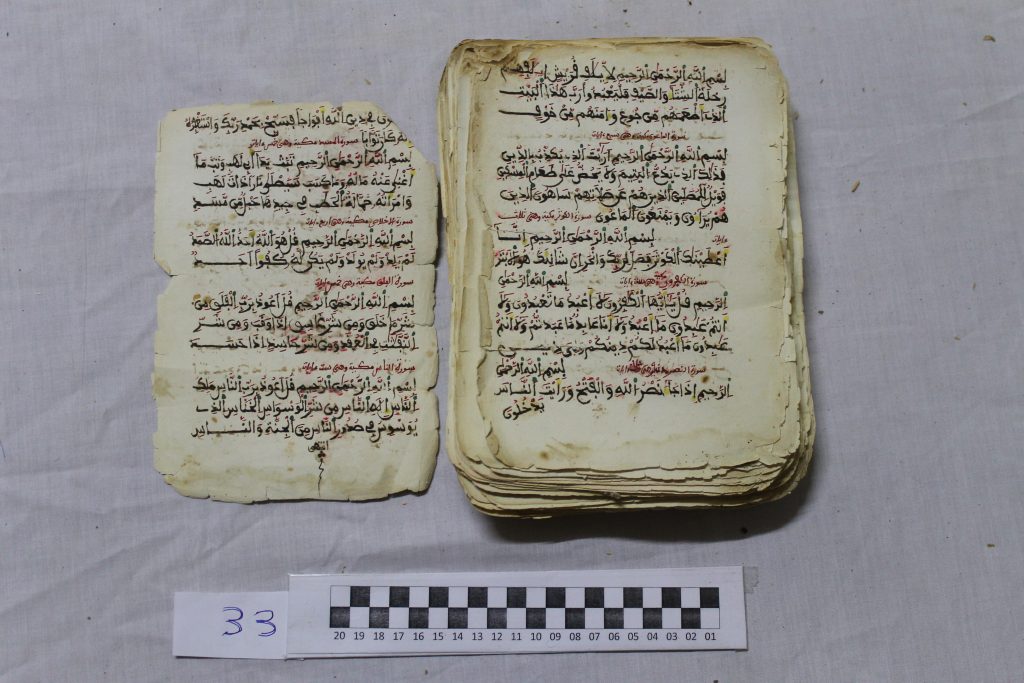 بسم الله الرحمن الرحيم لإيلف قريش إلفهم
رحلة الشتاء والصيف فليعبدوا رب هذا البيت
الذي أطعمهم من جوع وءامنهم من خوف
سورة الماعون مكية وهي سبع ءايات
بسم الله الرحمن الرحيم أرايت الذي يكذب بالدين
فذلك الذي يدع اليتيم ولا يحض على طعام المسكين
فويل للمصلين الذين هم عن صلاتهم ساهون الذين
هم يراءون ويمنعون الماعون سورة الكوثر مكية وهي ثلاث
ءايات بسم الله الرحمن الرحيم إنا
أعطينك الكوثر فصل لربك وانحر إن شانئك هو الأبتر
سورة الكافرون مكية وهي ست ءايات بسم الله الرحمن
الرحيم قل يأيها الكفرون لا أعبد ما تعبدون ولا
أنتم عبدون ما أعبد ولا أنا عابد ما عبدتم ولا أنتم
عبدون ما أعبد لكم دينكم ولي دين
سورة النصر وهي ءايات بسم الله الرحمن
الرحيم إذا جاء نصر الله والفتح ورأيت الناس
يدخلون
في دين الله أفواجا فسبح بحمد ربك واستغفره
إنه كان توابا سورة المسد مكية وهي خمس ءايات
بسم الله الرحمن الرحيم تبت يدا أبي لهب وتب ما
أغنى عنه ماله وما كسب سيصلى نارا ذات لهب
وامرأته حمالة الحطب في جيدها حبل من مسد
سورة الإخلاص مكية وهي أربع ءايات
بسم الله الرحمن الرحيم قل هو الله أحد الله الصمد
لم يلد ولم يولد ولم يكن له كفوا أحد
سورة الفلق مكية وهي خمس ءايات
بسم الله الرحمن الرحيم قل أعوذ برب الفلق من
شر ما خلق ومن شر غاسق إذا وقب ومن شر
النفثت في العقد ومن شر حاسد إذا حسد
سورة الناس مكية وهي ست ءايات
بسم الله الرحمن الرحيم قل أعوذ برب الناس ملك
الناس إله الناس من شر الوسواس الخناس الذي
يوسوس في صدور الناس من الجنة والناس
انتهى
33
20 19 18 17 16 15 14 13 12 11 10 09 08 07 06 05 04 03 02 01